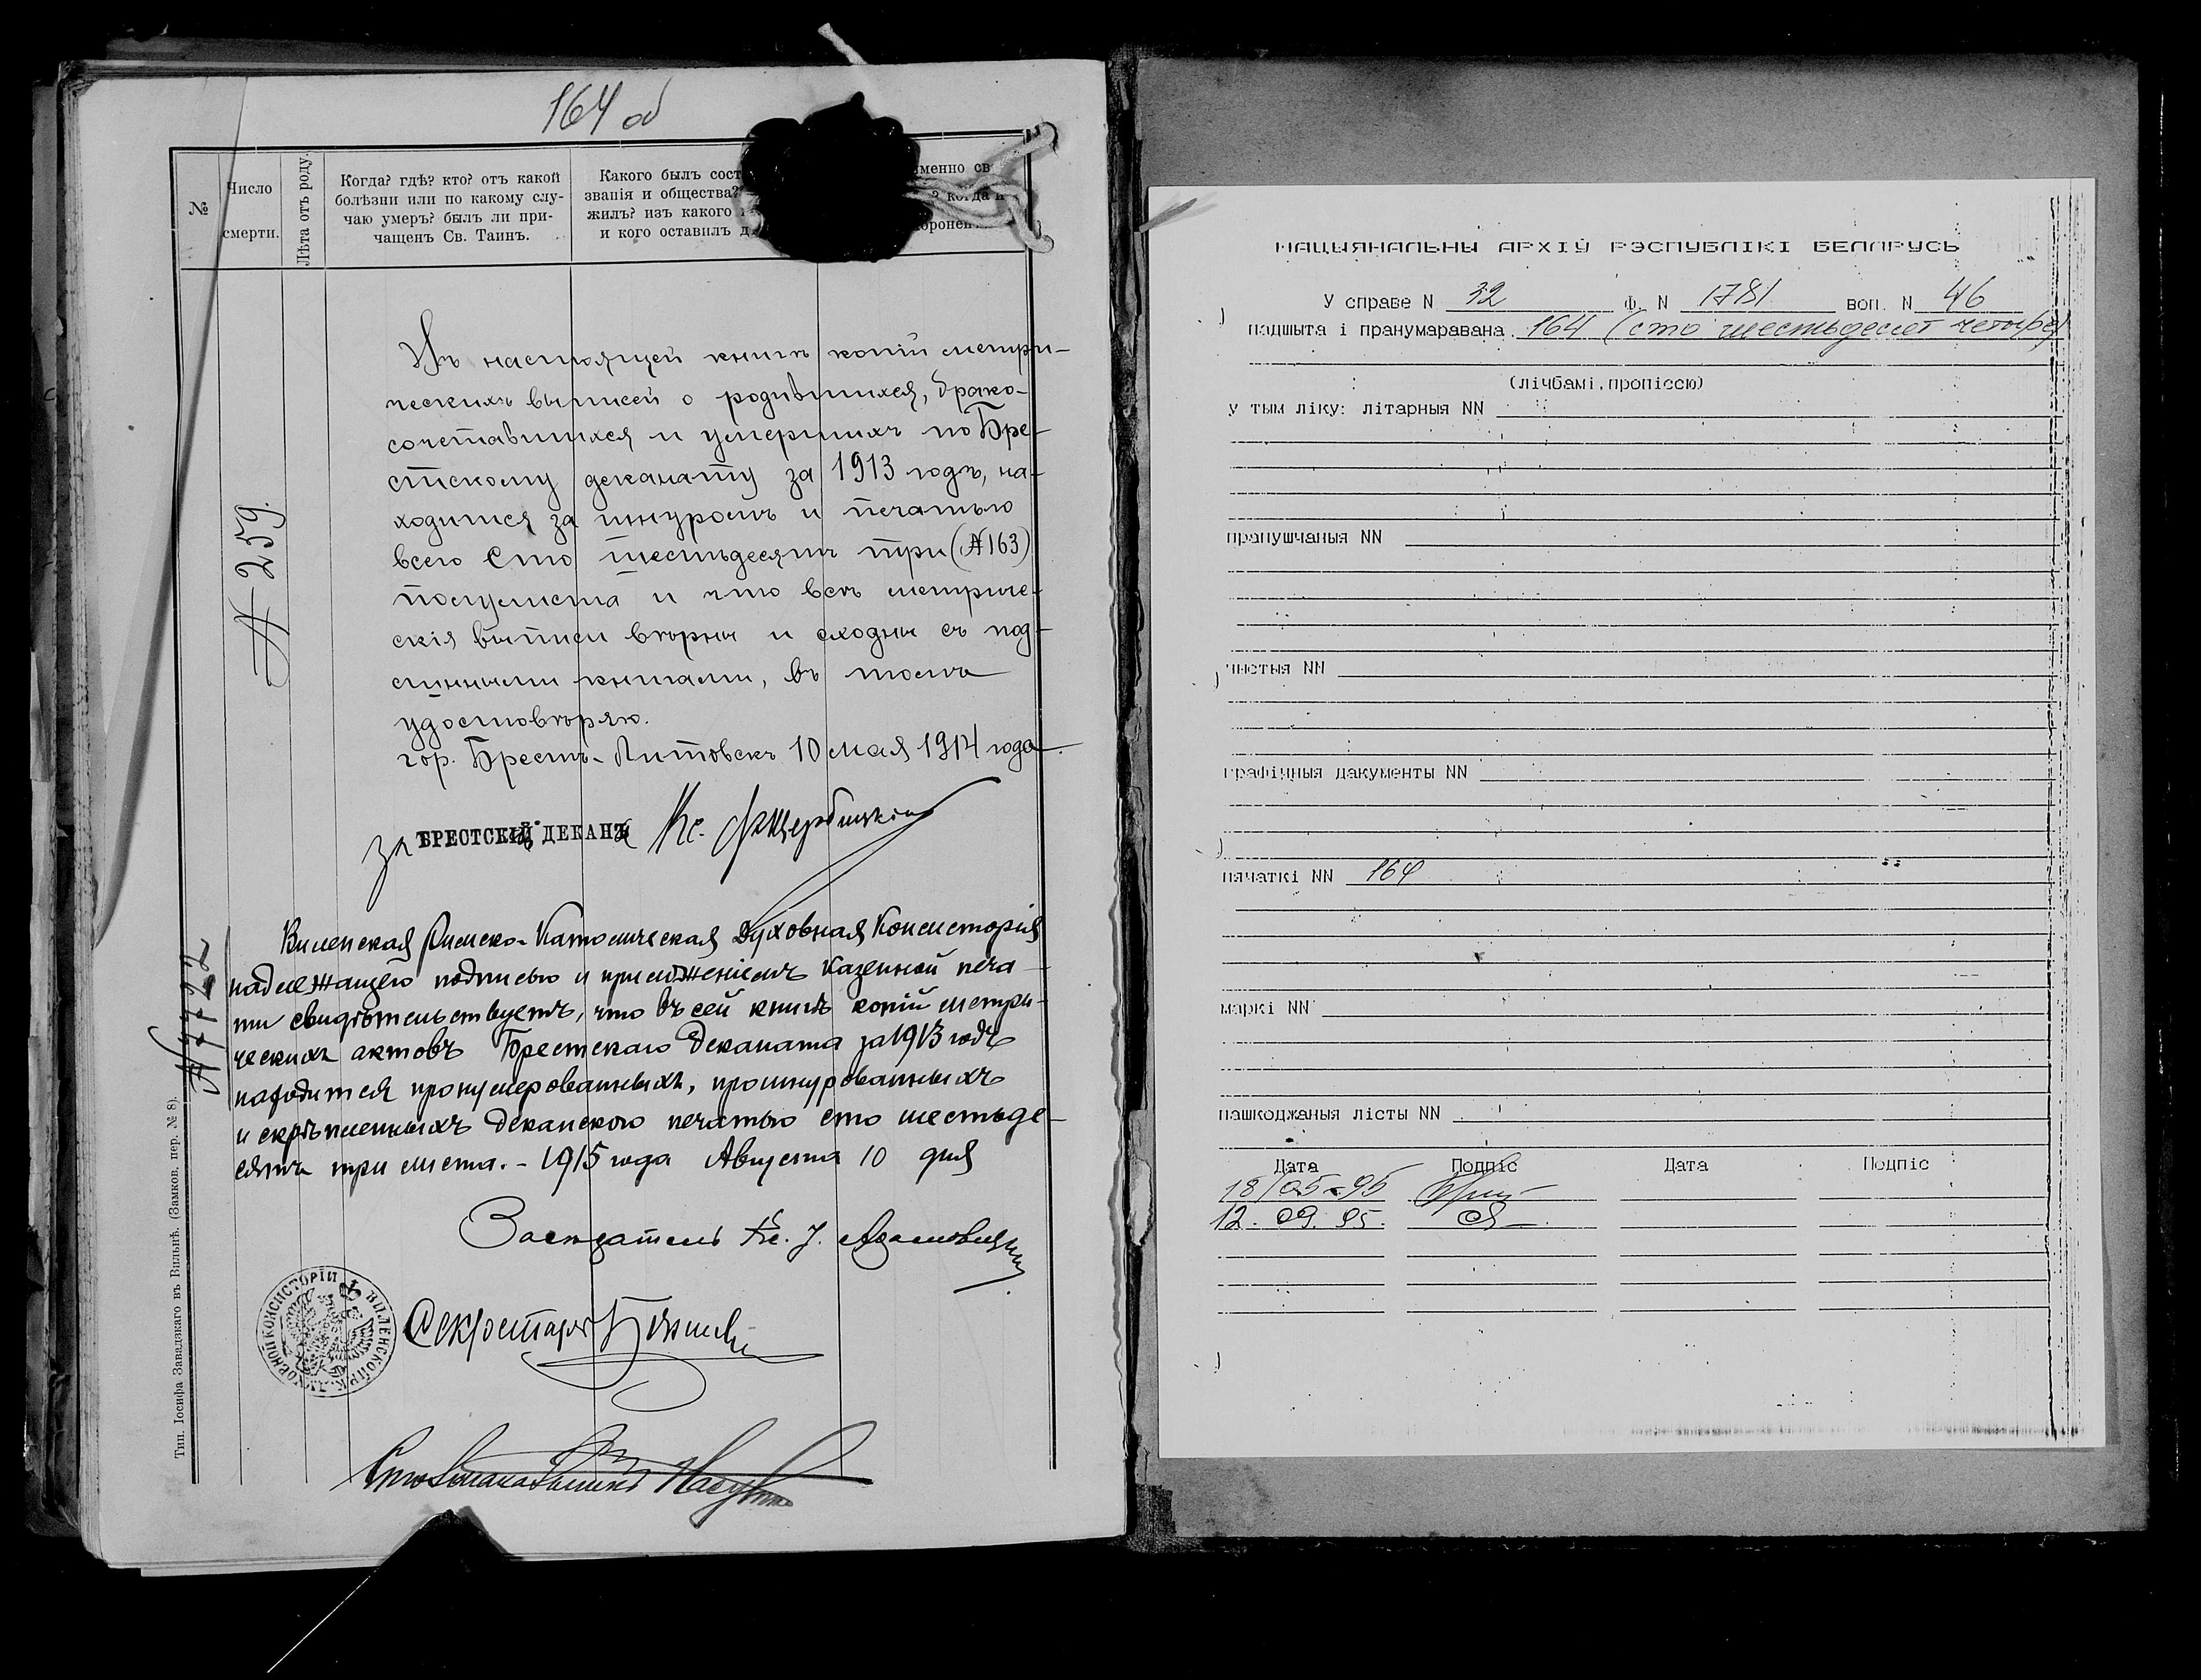 164 об
№
Число
смерти.
Лѣта отъ роду.
Когда? гдѣ? кто? отъ какой
болѣзни или по какому слу-
чаю умеръ? былъ ли при-
чащенъ Св. Таинъ.
Какого былъ сост
званія и общества?
жилъ? изъ какого
и кого оставилъ д
менно св
? когда и
оронен
Въ настоящей книгѣ копій метри-
ческихъ выписей о родившихся, брако-
сочетавшихся и умершихъ по Бре-
стскому деканату за 1913 годъ, на-
ходится за шнуромъ и печатью
всего сто шестьдесятъ три (№ 163)
полулиста и что всѣ метриче-
скія выписи вѣрны и сходны съ под-
линными книгами, въ томъ
удостовѣряю.
гор. Брестъ-Литовскъ 10 мая 1914 года.
№ 259.
За БРЕСТСКІЙ ДЕКАНЪ Кс.
№ 7722
Виленская Римско-Католическая Духовная Консисторія
надлежащею подписью и приложеніемъ казенной печа-
ти свидѣтельствуетъ, что въ сей книгѣ копій метри-
ческихъ актовъ Брестскаго деканата за 1913 годъ
находится пронумерованныхъ, прошнурованныхъ
и скрѣпленныхъ деканскою печатью сто шестьде-
сятъ три листа. - 1915 года Августа 10 дня
Засѣдатель Кс. І. Адамовичъ
Секретарь
Столоначальникъ
ВИЛЕНСКОЙ Р.К. ДУХОВНОЙ КОНСИСТОРІИ
Тип. Іосифа Завадзкаго въ Вильнѣ. (Замков. пер. № 8).
НАЦЫЯНАЛЬНЫ АРХІЎ РЭСПУБЛІКІ БЕЛАРУСЬ
У справе N 32 Ф. N 1781 воп. N 46
падшыта і пранумаравана 164 (сто шестьдесят четыре)
(лічбамі, пропіссю)
у тым ліку: літарныя NN
прапушчаныя NN
чыстыя NN
графічныя дакументы NN
пячаткі NN 164
маркі NN
пашкоджаныя лісты NN
Дата Подпіс Дата Подпіс
18/05-95
12. 09. 95.